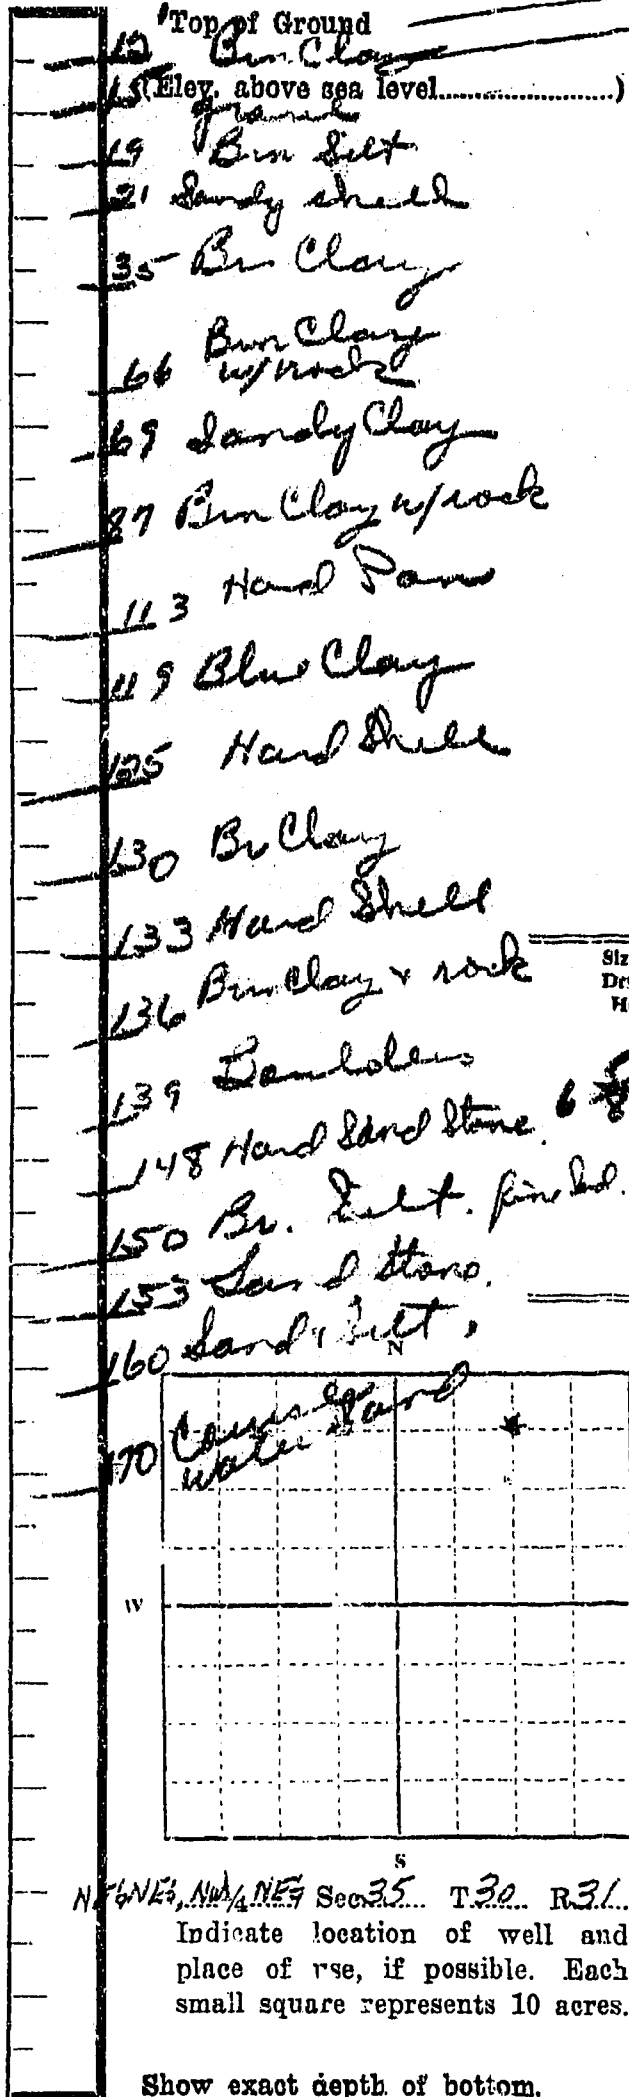 Top of Ground
12 Brn Clay
(Elev. above sea level........................)
15 gravel
19 Brn Silt
21 Sandy shell
35 Brn Clay
Brn Clay
66 w/rock
69 Sandy Clay
87 Brn Clay w/rock
113 Hard Pan
119 Blue Clay
125 Hard Shell
130 Br Clay
133 Hard Shell
Siz
Dr
H
136 Brn Clay & rock
139
148 Hard Sand Stone. 6
150 Br. Silt. fine Sd.
153 Sand Stone.
160 Sand & Silt,
N
170 Course
Water Sand
W
S
NW¼ NE¼ Sec. 35 T. 30 R. 31
Indicate location of well and
place of use, if possible. Each
small square represents 10 acres.
Show exact depth of bottom.